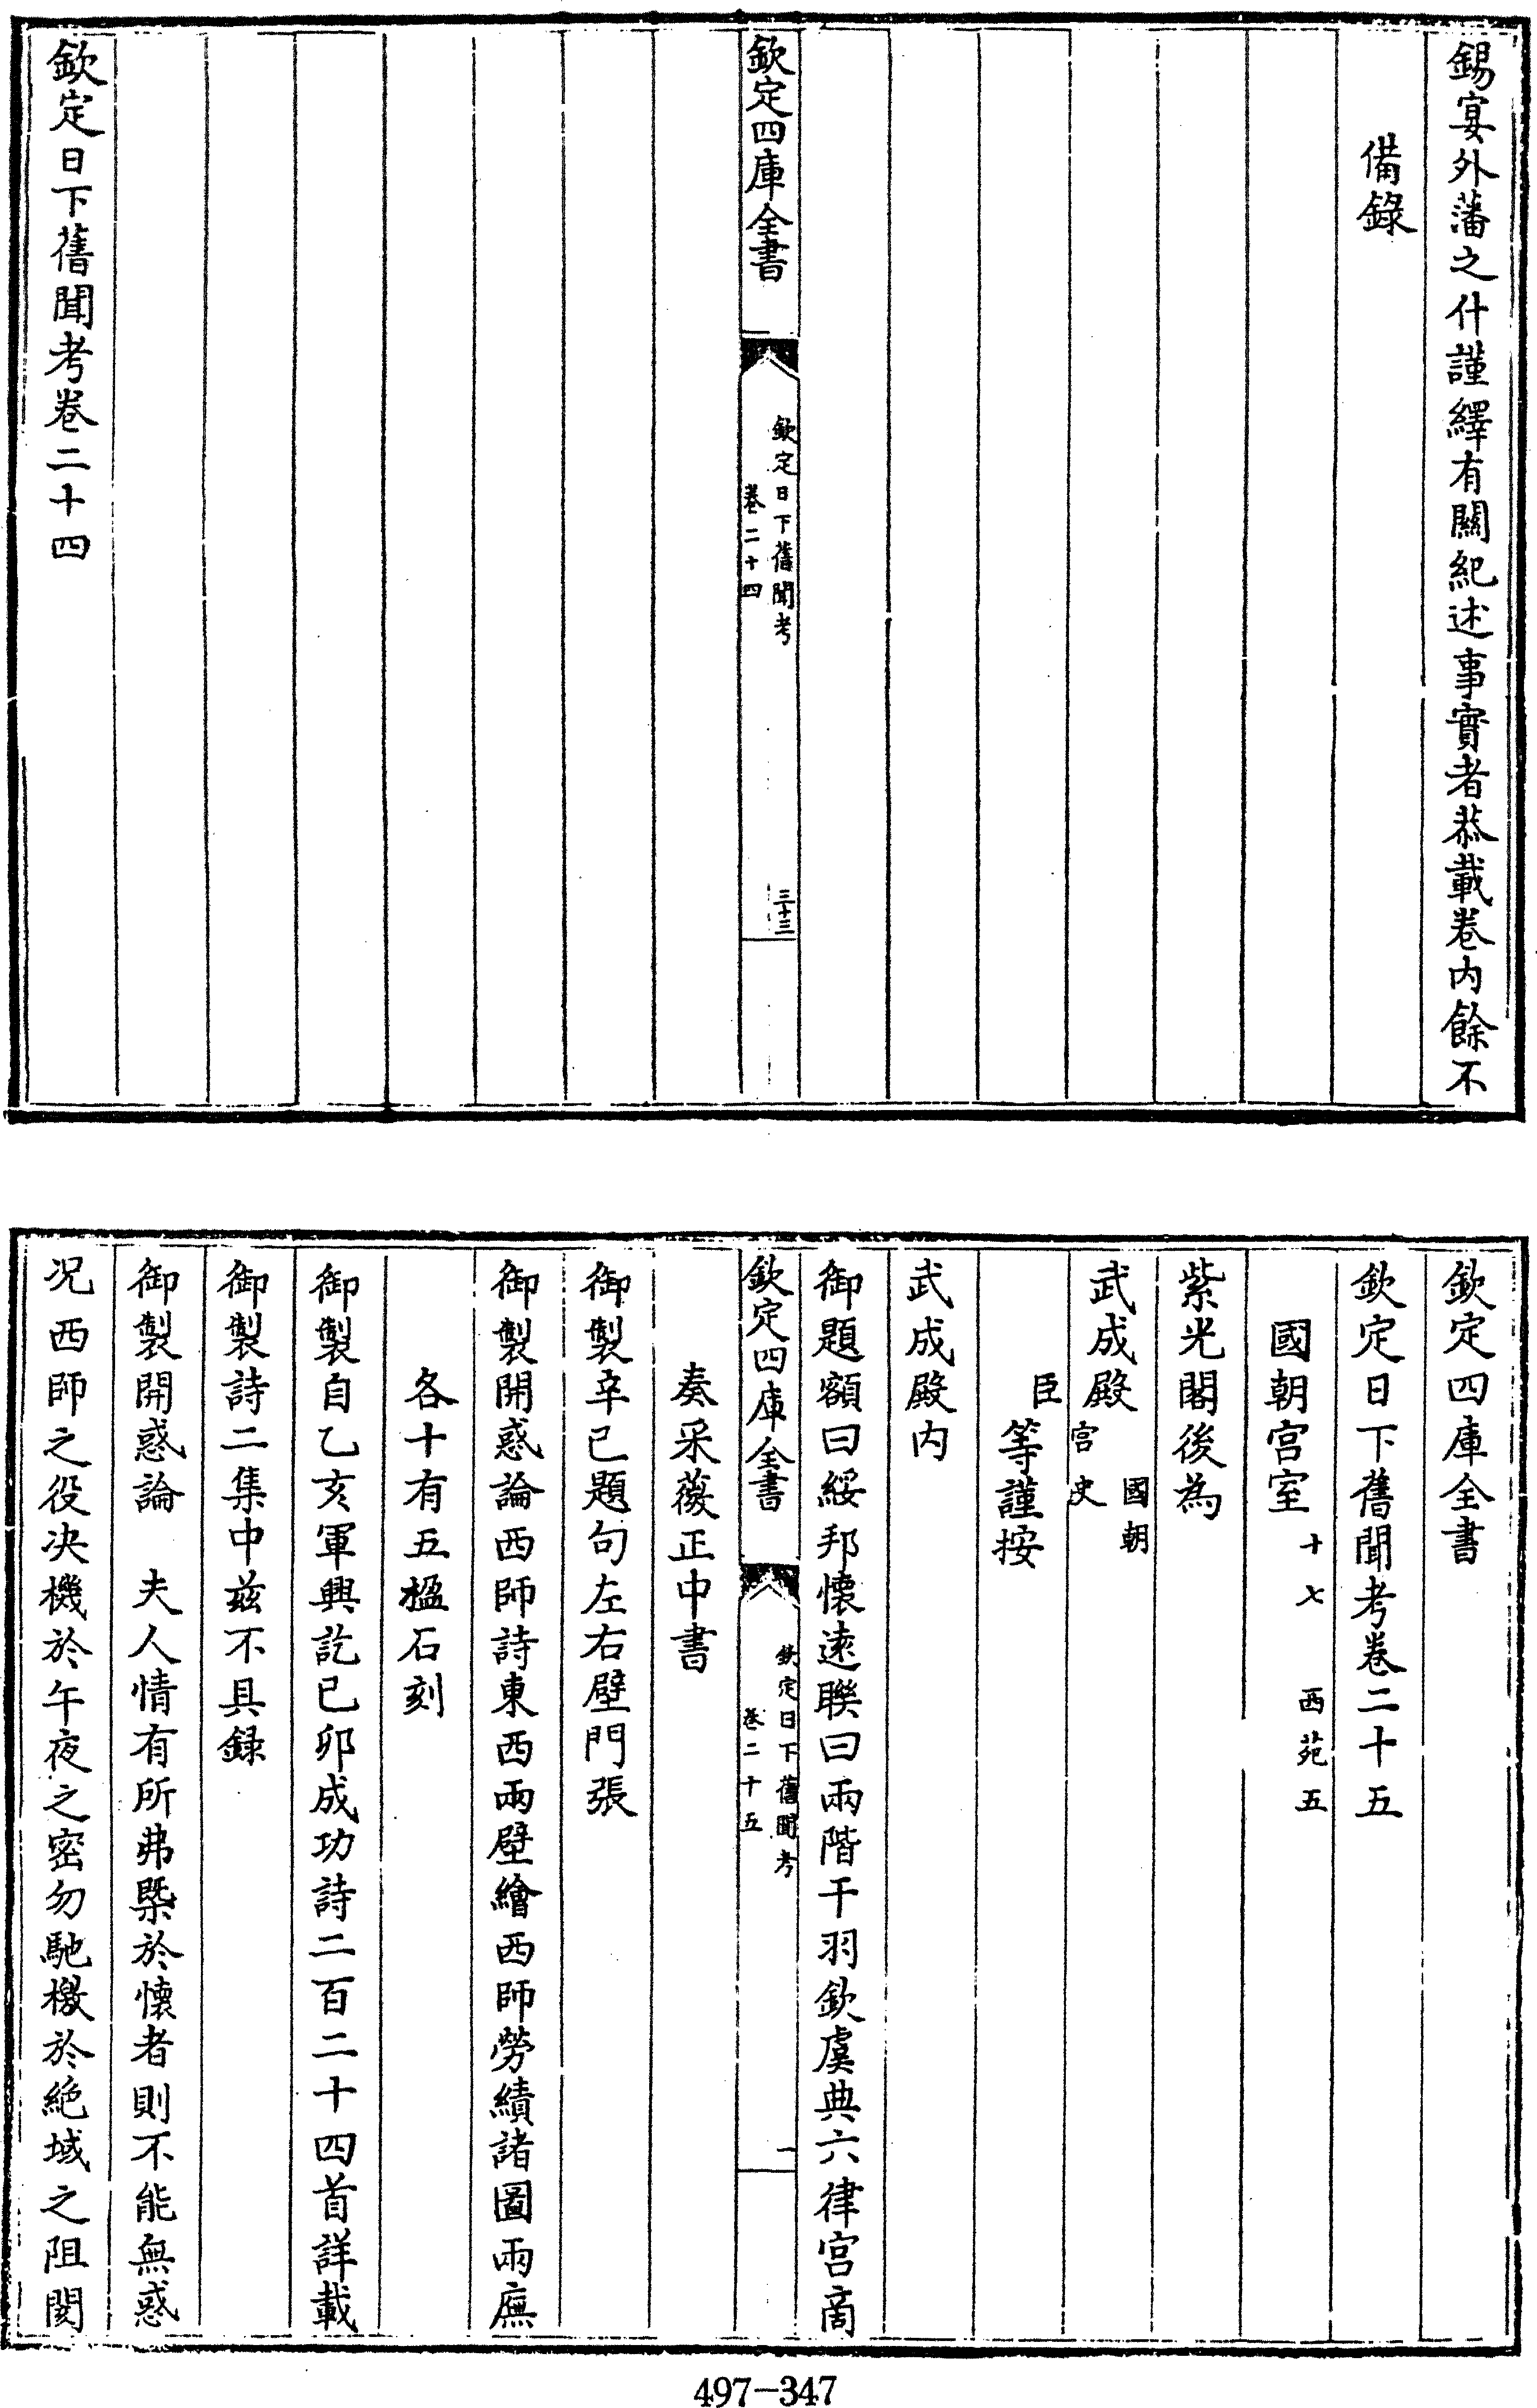 錫宴外藩之什謹繹有關紀述事實者恭載卷内餘不
備錄
欽定四庫全書
欽定日下舊聞考
卷二十四
三十三
欽定日下舊聞考卷二十四
欽定四庫全書
欽定日下舊聞考卷二十五
國朝宫室十七 西苑五
紫光閣後為
武成殿國朝
宫史
臣等謹按
武成殿内
御題額曰綏邦懷逺聯曰兩階干羽欽虞典六律宫商
欽定四庫全書
欽定日下舊聞考
卷二十五
一
奏采薇正中書
御製辛已題句左右壁門張
御製開惑論西師詩東西兩壁繪西師勞績諸圖兩廡
各十有五楹石刻
御製自乙亥軍興訖已卯成功詩二百二十四首詳載
御製詩二集中兹不具録
御製開惑論 夫人情有所弗槩於懷者則不能無惑
况西師之役决機於午夜之密勿馳檄於絶域之阻閡
497-347